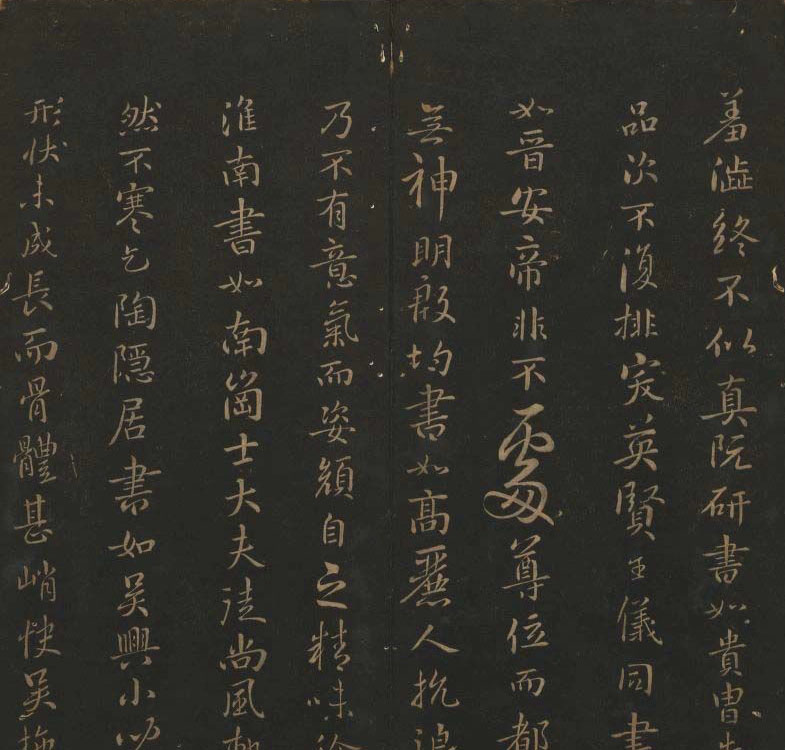 羞澁終不似真阮研書如貴胄
品次不復排突英賢王儀同書
如晉安帝非不處尊位而都
無神明殷均書如高麗人抗浪
乃不有意氣而姿顏自之精味
淮南書如南崗士大夫徒尚風軌
然不寒乞陶隱居書如吴興小
形狀未成長而骨體甚峭快吴施